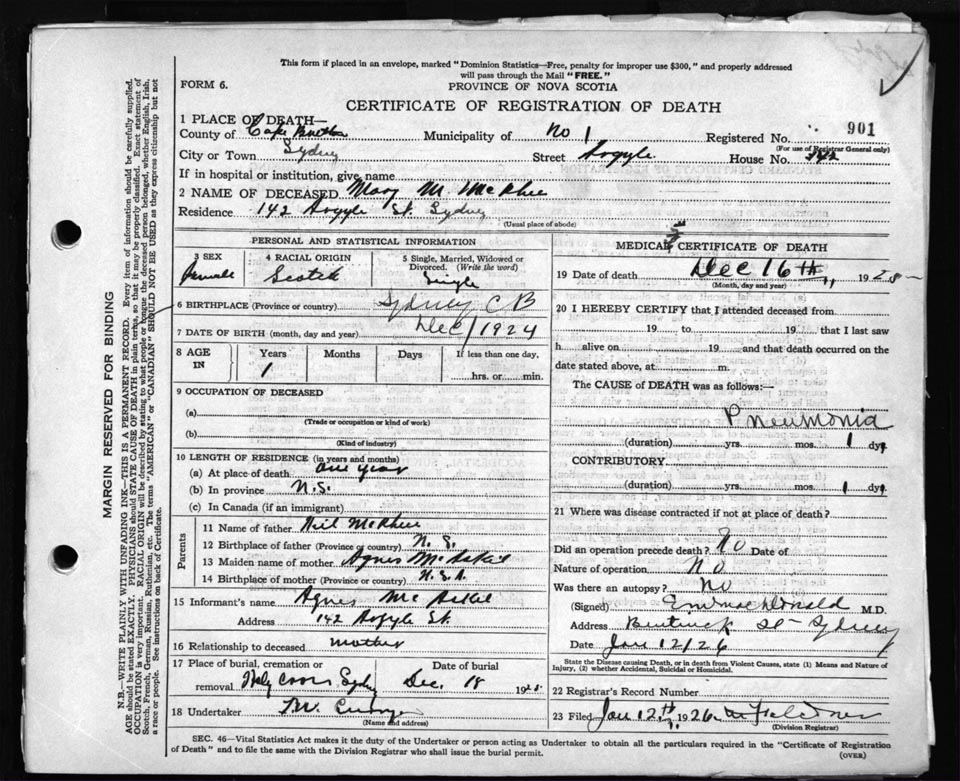 This form if placed in an envelope, marked "Dominion Statistics—Free, penalty for improper use $300," and properly addressed
will pass through the Mail "FREE."
FORM 6.
PROVINCE OF NOVA SCOTIA
CERTIFICATE OF REGISTRATION OF DEATH
1 PLACE OF DEATH—
County of Cape Breton Municipality of No 1 Registered No. 901
(For use of Registrar General only)
City or Town Sydney Street Argyle House No. 142
If in hospital or institution, give name
2 NAME OF DECEASED Mary M. McPhee
Residence 142 Argyle St. Sydney
(Usual place of abode)
PERSONAL AND STATISTICAL INFORMATION
3 SEX 4 RACIAL ORIGIN 5 Single, Married, Widowed or Divorced. (Write the word)
Female Scotch Single
6 BIRTHPLACE (Province or country) Sydney C B
7 DATE OF BIRTH (month, day and year) Dec/1924
8 AGE IN Years Months Days If less than one day,
1 hrs. or min.
9 OCCUPATION OF DECEASED
(a)
(Trade or occupation or kind of work)
(b)
(Kind of industry)
10 LENGTH OF RESIDENCE (in years and months)
(a) At place of death one year
(b) In province N.S.
(c) In Canada (if an immigrant)
Parents
11 Name of father Neil McPhee
12 Birthplace of father (Province or country) N. S.
13 Maiden name of mother Agnes
14 Birthplace of mother (Province or country)
15 Informant's name Agnes
Address 142 Argyle St.
16 Relationship to deceased mother
17 Place of burial, cremation or removal Holy Cross Sydney Date of burial Dec. 18 192
18 Undertaker
(Name and address)
MEDICAL CERTIFICATE OF DEATH
19 Date of death Dec 16th, 192
(Month, day and year)
20 I HEREBY CERTIFY that I attended deceased from
19 to 19 that I last saw
h alive on 19 and that death occurred on the
date stated above, at m.
The CAUSE of DEATH was as follows:—
Pneumonia
(duration) yrs. mos. 1 dys
CONTRIBUTORY
(duration) yrs. mos. 1 dys
21 Where was disease contracted if not at place of death?
Did an operation precede death? No Date of
Nature of operation No
Was there an autopsy? No
(Signed) M.D.
Address St Sydney
Date Jan 12/26
State the Disease causing Death, or in death from Violent Causes, state (1) Means and Nature of
Injury, (2) whether Accidental, Suicidal or Homicidal.
22 Registrar's Record Number
23 Filed Jan 12th 1926
(Division Registrar)
SEC. 46—Vital Statistics Act makes it the duty of the Undertaker or person acting as Undertaker to obtain all the particulars required in the "Certificate of Registration
of Death" and to file the same with the Division Registrar who shall issue the burial permit.
(OVER)
MARGIN RESERVED FOR BINDING
N.B.—WRITE PLAINLY WITH UNFADING INK—THIS IS A PERMANENT RECORD. Every item of information should be carefully supplied.
AGE should be stated EXACTLY. PHYSICIANS should STATE CAUSE OF DEATH in plain terms, so that it may be properly classified. Exact statement of
OCCUPATION is very important. RACIAL ORIGIN will be described by stating to what people or tongue the deceased person belonged, whether English, Irish,
Scotch, French, German, Russian, Ruthenian, etc. The terms "AMERICAN" or "CANADIAN" SHOULD NOT BE USED as they express citizenship but not
a race or people. See instructions on back of Certificate.